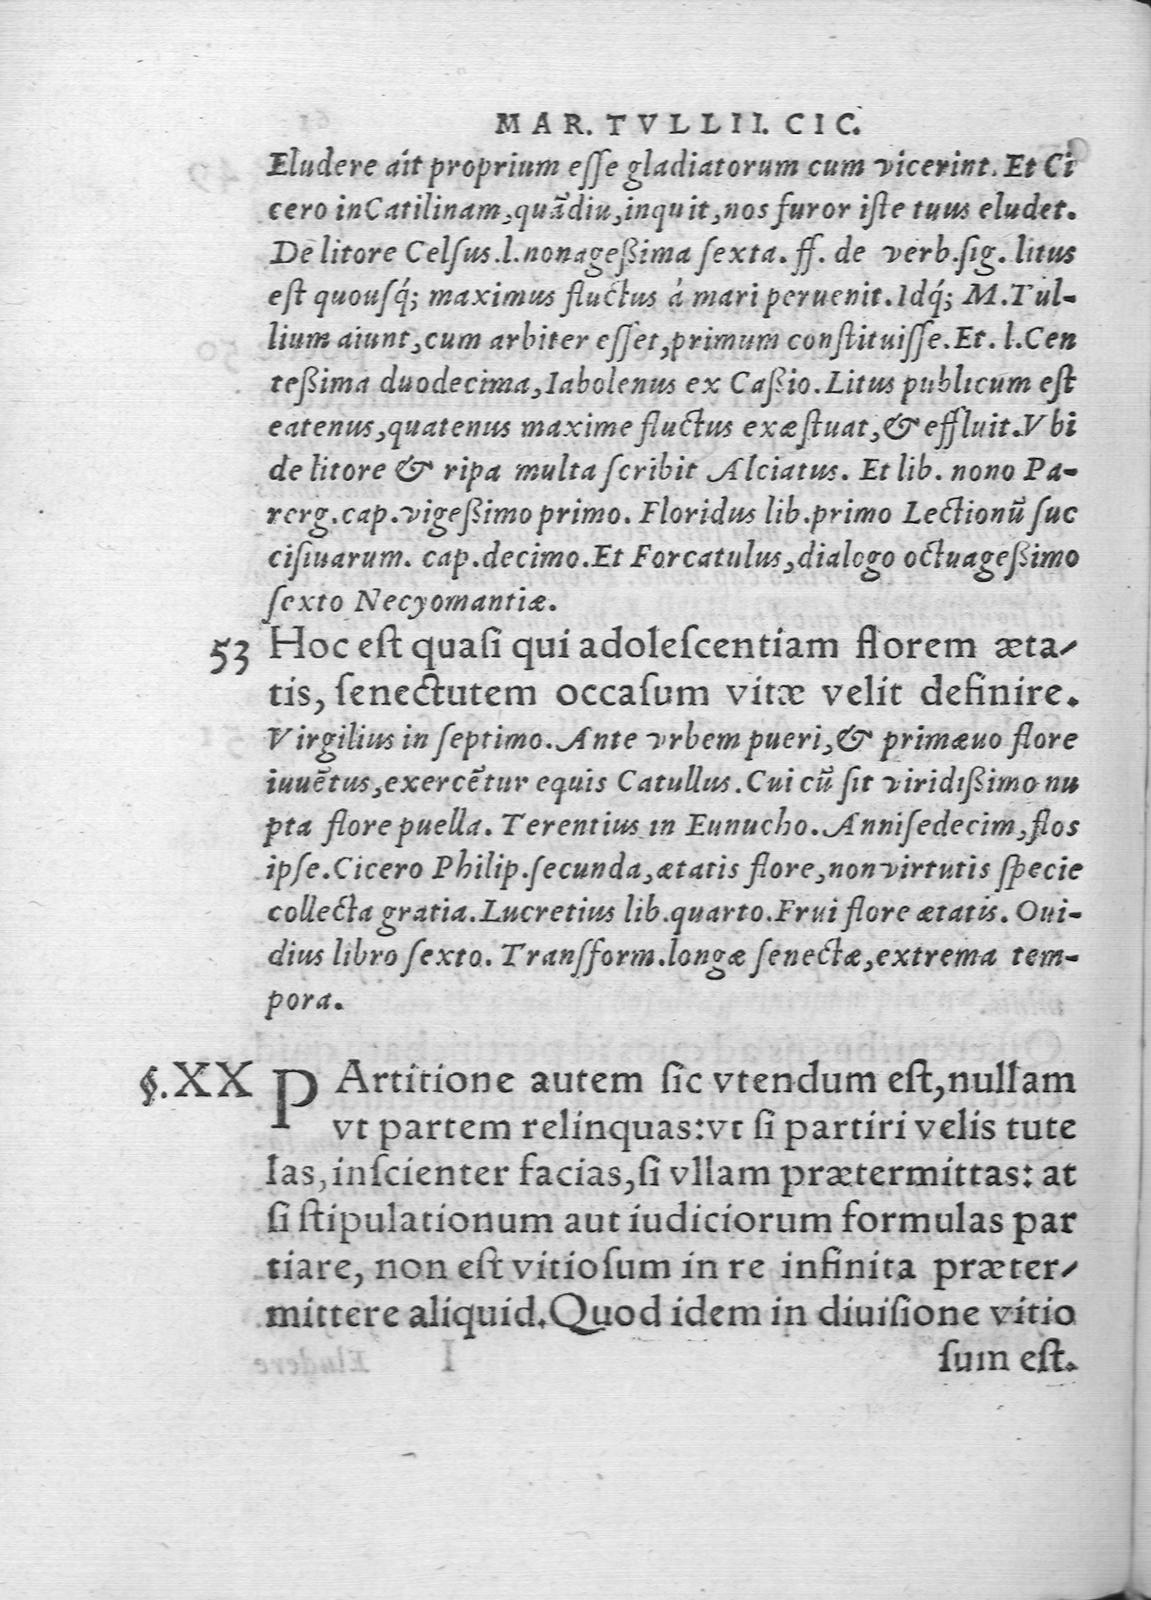 MAR. TVLLII. CIC.
Eludere ait proprium eſſe gladiatorum cum vicerint. Et Ci
cero inCatilinam,quãdiu,inquit,nos furor iſte tuus eludet.
De litore Celſus.l.nonageßima ſexta. ff. de verb.ſig. litus
eſt quouſq́; maximus fluctus á mari peruenit.Idq́; M.Tul-
lium aiunt,cum arbiter eſſet,primum conſtituiſſe.Et. l.Cen
teßima duodecima,Iabolenus ex Caßio.Litus publicum eſt
eatenus,quatenus maxime fluctus exæſtuat,& effluit.Vbi
de litore & ripa multa ſcribit Alciatus. Et lib. nono Pa-
rerg.cap.vigeßimo primo. Floridus lib.primo Lectionũ ſuc
ciſiuarum. cap.decimo.Et Forcatulus,dialogo octuageßimo
ſexto Necyomantiæ.
53 Hoc eſt quaſi qui adoleſcentiam florem æta-
tis, ſenectutem occaſum vitæ velit definire.
Virgilius in ſeptimo. Ante vrbem pueri,& primæuo flore
iuuẽtus,exercẽtur equis Catullus. Cui cũ ſit viridißimo nu
pta flore puella. Terentius in Eunucho. Anni ſedecim, flos
ipſe.Cicero Philip.ſecunda,ætatis flore,non virtutis ſpecie
collecta gratia.Lucretius lib.quarto.Frui flore ætatis. Oui-
dius libro ſexto. Tranſform.longæ ſenectæ,extrema tem-
pora.
§.XX PArtitione autem ſic vtendum eſt,nullam
vt partem relinquas:vt ſi partiri velis tute
las,inſcienter facias,ſi vllam prætermittas: at
ſi ſtipulationum aut iudiciorum formulas par
tiare, non eſt vitioſum in re infinita præter-
mittere aliquid.Quod idem in diuiſione vitio
ſum eſt.